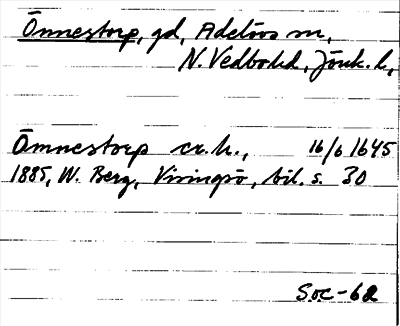 Önnestorp, gd, Adelövs sn,
N. Vedbo hd, Jönk. l.,
Ömnestorp cr.h., 16/6 1645
1885, W. Berg, Visingsö, bil. s. 30
Soc-62